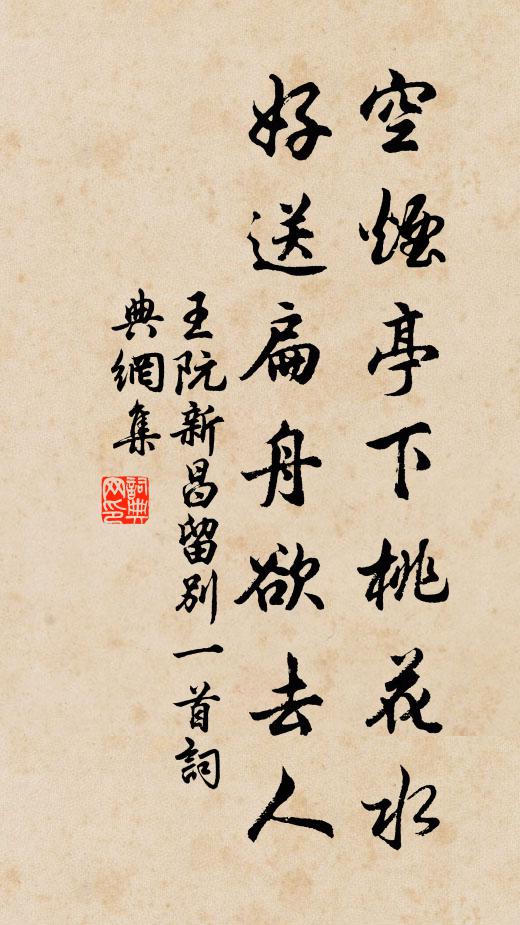 空煙亭下桃花水
好送扁舟欲去人
王阮新昌留別一首詞
典網集
詞典
网印